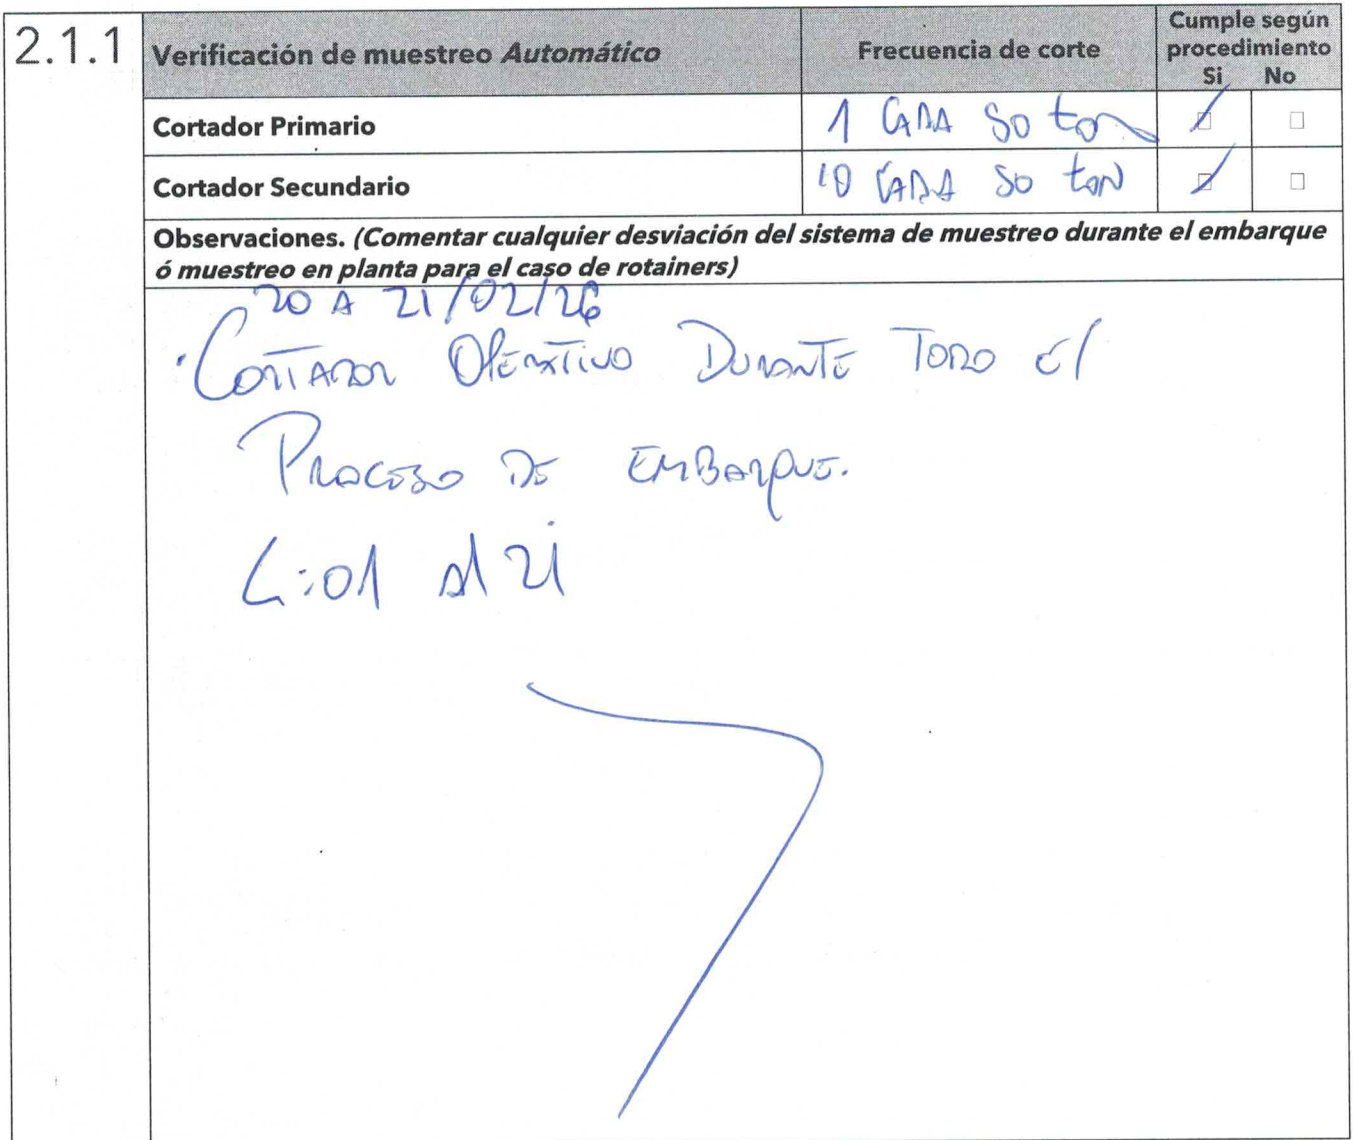 2.1.1 Verificación de muestreo Automático Frecuencia de corte Cumple según procedimiento Si No
Cortador Primario 1 CADA 50 ton
Cortador Secundario 10 CADA 50 ton
Observaciones. (Comentar cualquier desviación del sistema de muestreo durante el embarque
ó muestreo en planta para el caso de rotainers)
20 A 21/02/26
· CORTADOR OPERATIVO DURANTE TODO El
PROCESO DE EMBARQUE.
L:01 al 21